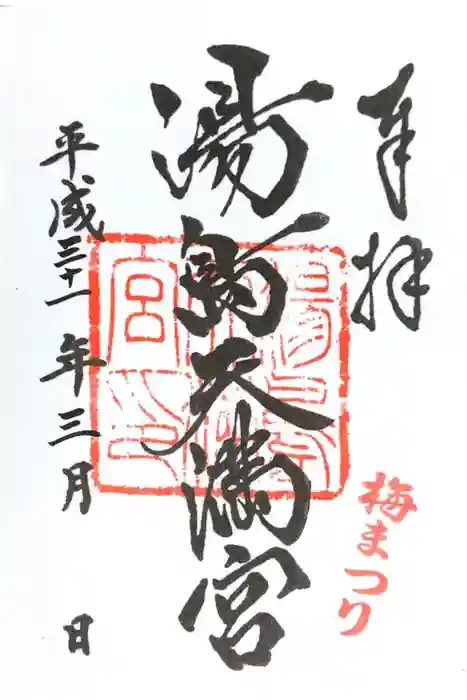 奉拝
梅まつり
湯島天満宮
平成三十一年三月 日